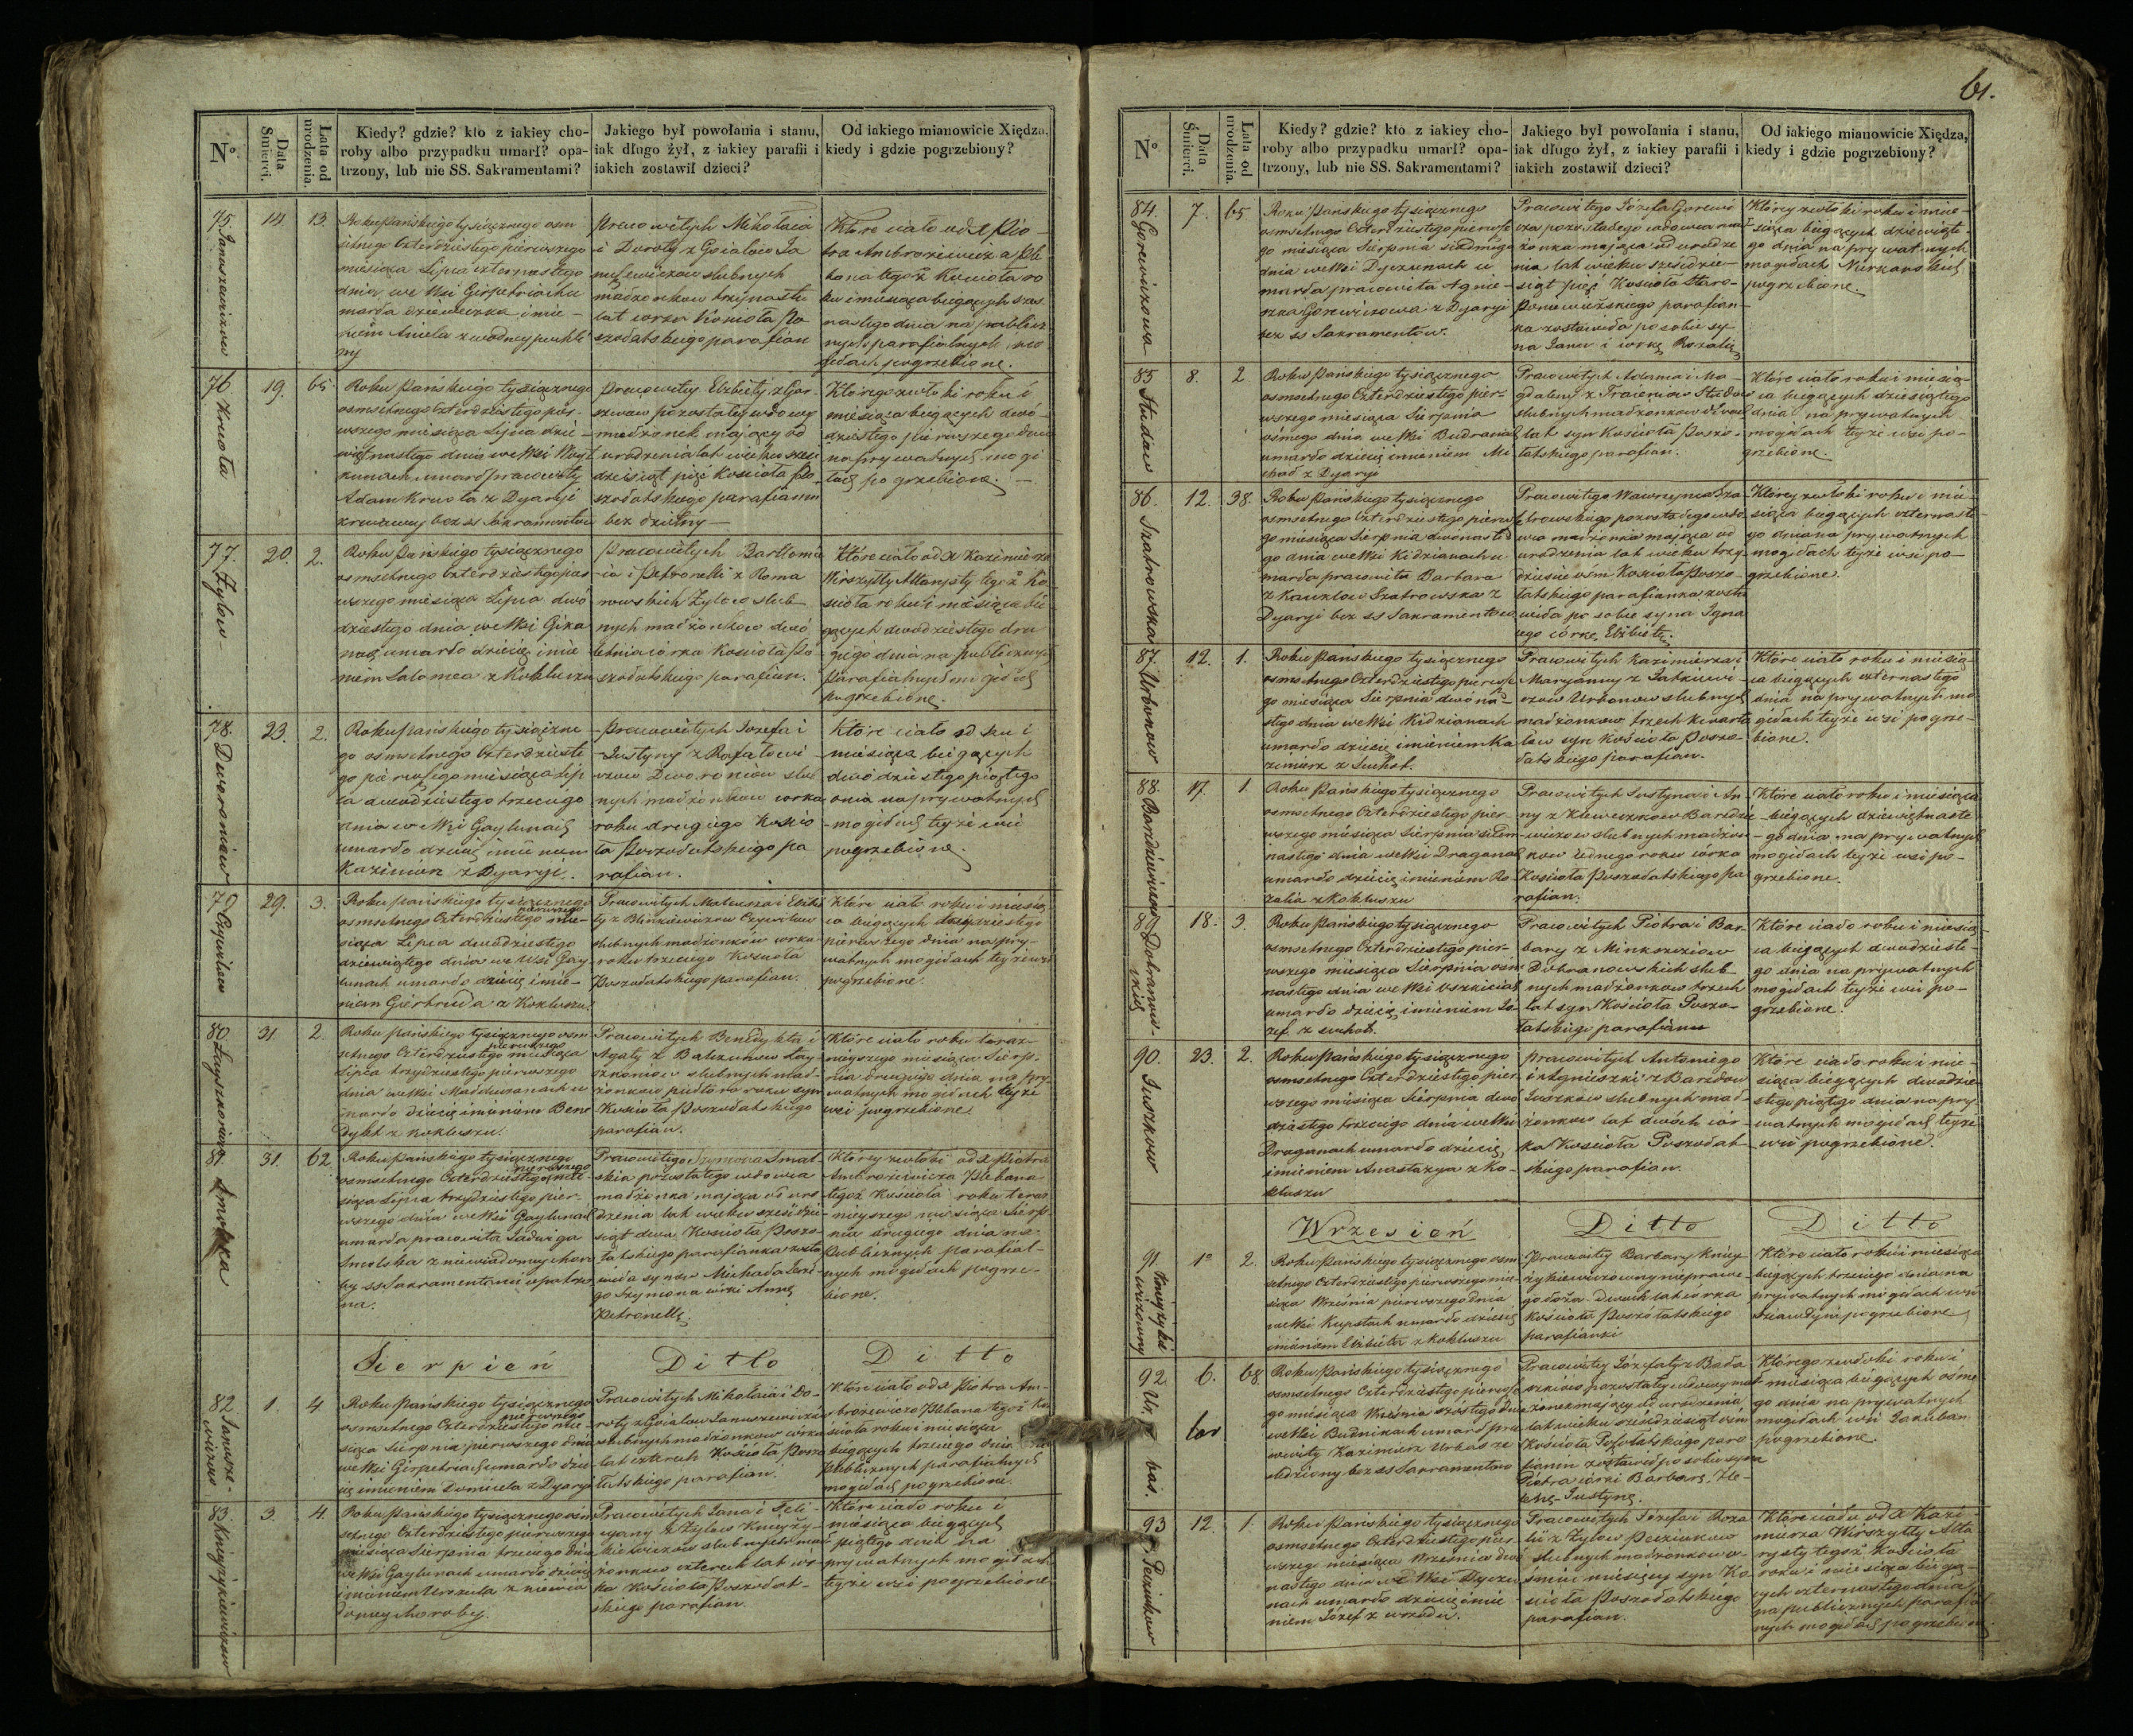 61.
N°
Data Śmierci.
Lata od urodzenia.
Kiedy? gdzie? kto z iakiey cho-
roby albo przypadku umarł? opa-
trzony, lub nie SS. Sakramentami?
Jakiego był powołania i stanu,
iak długo żył, z iakiey parafii i
iakich zostawił dzieci?
Od iakiego mianowicie Xiędza,
kiedy i gdzie pogrzebiony?
75
14
13.
Roku Pańskiego tysiącznego osm
setnego Czterdziestego pierwszego
miesiąca Lipca czternastego
dnia we Wsi Girpetriach u
marła dzieweczka imie-
niem Aniela z wodney puchli
ny
Pracowitych Mikołaia
i Doroty z Ja
nuszewiczow slubnych
małżonkow trzynastu
lat corka Kościoła Po
szołatskiego parafian
Które ciało od X Pio-
tra Ambrożewicza Ple
bana tegoż Kościoła ro
ku i miesiąca bieżących szes
nastego dnia na publicz
nych parafialnych mo
giłach pogrzebione.
76 Krusta
19.
65.
Roku Pańskiego tysiącznego
osmsetnego Czterdziestego pier-
wszego miesiąca Lipca dzie-
więtnastego dnia we Wsi
umarł pracowity
Adam z Dyaryi
krwawey bez ss Sakramentow
Pracowitey Elżbiety z
pozostałey wdowy
małżonek maiący od
urodzenia lat wieku sześć
dziesiąt pięć Kościoła Po
szołatskiego parafianin
bez dzietny
Którego zwłoki roku i
miesiąca bieżących dwó-
dziestego pierwszego dnia
na prywatnych mogi
łach pogrzebione.
77. Żyłow
20.
2.
Roku Pańskiego tysiącznego
osmsetnego Czterdziestego pier
wszego miesiąca Lipca dwó
dziestego dnia we Wsi
umarło dziecię imie
niem Salomea z Kokluszu
Pracowitych Bartłomie
ia i Petronelli z Roma
nowskich Żyłow slub
nych małżonkow dwó
letnia corka Kościoła Po
szołatskiego parafian.
Które ciało od X Kazimierza
Wirszyłły Altarysty tegoż Ko
ścioła roku i miesiąca bie
żących dwódziestego dru
giego dnia na publicznych
parafialnych mogiłach
pogrzebione.
78 Dworoniow
23.
2.
Roku Pańskiego tysiączne
go osmsetnego Czterdzieste
go pierwszego miesiąca Lip
ca dwódziestego trzeciego
dnia we Wsi Gaylunach
umarło dziecię imieniem
Kazimierz z Dyaryi.
Pracowitych Jozefa i
Justyny z Rafałowi
czow Dworoniow slub
nych małżonkow corka
roku drugiego Kościo
ła Poszołatskiego pa
rafian.
Które ciało roku i
miesiąca bieżących
dwódziestego piątego
dnia na prywatnych
mogiłach teyże wsi
pogrzebione.
79
29.
3.
Roku Pańskiego tysiącznego
osmsetnego Czterdziestego pierwszego mie-
siąca Lipca dwódziestego
dziewiątego dnia we Wsi Gay
lunach umarło dziecię imie-
niem Giertruda z Kokluszu.
Pracowitych Mateusza i Elżbie
ty z
slubnych małżonkow corka
roku trzeciego Kościoła
Poszołatskiego parafian.
Które ciało roku i miesią
ca bieżących
pierwszego dnia na pry-
watnych mogiłach teyże wsi
pogrzebione.
80
31.
2.
Roku Pańskiego tysiącznego osm
setnego Czterdziestego pierwszego miesiąca
Lipca trzydziestego pierwszego
dnia we Wsi u
marło dziecię imieniem Bene
dykt z kokluszu.
Pracowitych Benedykta i
Agaty z
slubnych mał-
żonkow roku syn
Kościoła Poszołatskiego
parafian.
Które ciało roku teraz-
nieyszego miesiąca Sierp-
nia drugiego dnia na pry-
watnych mogiłach teyże
wsi pogrzebione.
81. Smolska
31.
62.
Roku Pańskiego tysiącznego
osmsetnego Czterdziestego pierwszego mie
siąca Lipca trzydziestego pier-
wszego dnia we Wsi Gaylunach
umarła pracowita Jadwiga
Smolska z niewiadomey choro
by ss Sakramentami opatrzo
na.
Pracowitego Szymona Smol-
skia pozostałego wdowca
małżonka maiąca od uro-
dzenia lat wieku sześćdzie-
siąt dwa Kościoła Poszo-
łatskiego parafianka zosta
wiła synow Michała
go Szymona corki Annę
Petronellę.
Którey zwłoki od X Piotra
Ambrożewicza Plebana
tegoż Kościoła roku teraz-
nieyszego miesiąca Sierp-
nia drugiego dnia na
publicznych parafial-
nych mogiłach pogrze-
bione.
Sierpień
Ditto
Ditto
82 Januszewiczow
1.
4.
Roku Pańskiego tysiącznego
osmsetnego Czterdziestego pierwszego mie-
siąca Sierpnia pierwszego dnia
we Wsi Girpetriach umarło dzie
cię imieniem Domicela z Dyaryi
Pracowitych Mikołaia i Do-
roty z Januszewiczow
slubnych małżonkow corka
lat czterech Kościoła Poszo
łatskiego parafian.
Które ciało od X Piotra Am-
brożewicza Plebana tegoż Ko
ścioła roku i miesiąca
bieżących trzeciego dnia na
publicznych parafialnych
mogiłach pogrzebione.
83
3.
4.
Roku Pańskiego tysiącznego osm
setnego Czterdziestego pierwszego
miesiąca Sierpnia trzeciego dnia
we Wsi Gaylunach umarło dziecię
imieniem Urszula z niewia
domey choroby.
Pracowitych Jana i Feli-
cyany z Żyłow Kniyży-
kiewiczow slubnych mał
żonkow czterech lat cor-
ka Kościoła Poszołat-
skiego parafian.
Które ciało roku i
miesiąca bieżących
piątego dnia na
prywatnych mogiłach
teyże wsi pogrzebione
N°
Data Śmierci.
Lata od urodzenia.
Kiedy? gdzie? kto z iakiey cho-
roby albo przypadku umarł? opa-
trzony, lub nie SS. Sakramentami?
Jakiego był powołania i stanu,
iak długo żył, z iakiey parafii i
iakich zostawił dzieci?
Od iakiego mianowicie Xiędza,
kiedy i gdzie pogrzebiony?
84. Gorewiczowa
7.
65
Roku Pańskiego tysiącznego
osmsetnego Czterdziestego pierwsze
go miesiąca Sierpnia siódmego
dnia we Wsi Dyczunach u
marła pracowita Agnie-
szka Gorewiczowa z Dyaryi
bez ss Sakramentow.
Pracowitego Józefa Gorewi
cza pozostałego wdowca mał
żonka maiąca od urodze
nia lat wieku sześćdzie-
siąt pięć Kościoła Staro-
Poniewiżskiego parafian-
ka zostawiła po sobie sy-
na Jana i corkę Rozalią
Którey zwłoki roku i mie-
siąca bieżących dziewiąte-
go dnia na prywatnych
mogiłach
pogrzebione.
85
8.
2.
Roku Pańskiego tysiącznego
osmsetnego Czterdziestego pier-
wszego miesiąca Sierpnia
ósmego dnia we Wsi
umarło dziecię imieniem Mi
chał z Dyaryi
Pracowitych Adama i Ma-
gdaleny z
slubnych małżonkow dwoch
lat syn Kościoła Poszo-
łatskiego parafian.
Które ciało roku i miesią-
ca bieżących dziesiątego
dnia na prywatnych
mogiłach teyże wsi po-
grzebione.
86. Szatrowska
12.
38.
Roku Pańskiego tysiącznego
osmsetnego Czterdziestego pierwsze
go miesiąca Sierpnia dwónaste
go dnia we Wsi Kidzianach u-
marła pracowita Barbara
z Szatrowska z
Dyaryi bez ss Sakramentow
Pracowitego Wawrzynca Sza-
trowskiego pozostałego wdo
wca małżonka maiąca od
urodzenia lat wieku trzy
dzieście ośm Kościoła Poszo-
łatskiego parafianka zosta
wiła po sobie syna Igna
cego córkę Elżbietę.
Którey zwłoki roku i mie-
siąca bieżących czternaste
go dnia na prywatnych
mogiłach teyże wsi po-
grzebione.
87. Urbanow
12.
1.
Roku Pańskiego tysiącznego
osmsetnego Czterdziestego pierwsze
go miesiąca Sierpnia dwóna-
stego dnia we Wsi Kidzianach
umarło dziecię imieniem Ka
zimierz z Suchot.
Pracowitych Kazimierza i
Maryanny z
Urbanow slubnych
małżonkow trzech kwarta
łow syn Kościoła Poszo-
łatskiego parafian.
Które ciało roku i miesią-
ca bieżących czternastego
dnia na prywatnych mo
giłach teyże wsi pogrze-
bione.
88
17.
1.
Roku Pańskiego tysiącznego
osmsetnego Czterdziestego pier-
wszego miesiąca Sierpnia siedm-
nastego dnia we Wsi Draganach
umarło dziecię imieniem Ro-
zalia z kokluszu
Pracowitych Justyna i An-
ny z
slubnych małżon
kow iednego roku córka
Kościoła Poszołatskiego pa
rafian.
Które ciało roku i miesiąca
bieżących dziewiętnaste
go dnia na prywatnych
mogiłach teyże wsi po-
grzebione.
89 Dobranowskich
18.
3.
Roku Pańskiego tysiącznego
osmsetnego Czterdziestego pier-
wszego miesiąca Sierpnia osm
nastego dnia we Wsi
umarło dziecię imieniem Jo-
zef z suchot.
Pracowitych Piotra i Bar-
bary z
Dobranowskich slub
nych małżonkow trzech
lat syn Kościoła Poszo-
łatskiego parafian
Które ciało roku i miesią-
ca bieżących dwadzieste-
go dnia na prywatnych
mogiłach teyże wsi po-
grzebione.
90. Juszkow
23.
2.
Roku Pańskiego tysiącznego
osmsetnego Czterdziestego pier-
wszego miesiąca Sierpnia dwu
dziestego trzeciego dnia we Wsi
Draganach umarło dziecię
imieniem Anastazya z Ko-
kluszu
Pracowitych Antoniego
i Agnieszki z
Juszkow slubnych mał-
żonkow lat dwóch cór-
ka Kościoła Poszołat-
skiego parafian.
Które ciało roku i mie-
siąca bieżących dwadzie
stego piątego dnia na pry-
watnych mogiłach teyże
wsi pogrzebione.
Wrzesień
Ditto
Ditto
91
1°
2.
Roku Pańskiego tysiącznego osm
setnego Czterdziestego pierwszego mie-
siąca Września pierwszego dnia
we Wsi Kupstach umarło dziecię
imieniem Elżbieta z kokluszu
Pracowitey Barbary Kniy-
żykiewiczowny nieprawe-
go łoża dwoch lat córka
Kościoła Poszołatskiego
parafianki
Które ciało roku i miesiąca
bieżących trzeciego dnia na
prywatnych mogiłach wsi
pogrzebione
92 Urbas.
6.
68.
Roku Pańskiego tysiącznego
osmsetnego Czterdziestego pierwsze
go miesiąca Września szóstego dnia
we Wsi Budnikach umarł pra
cowity Kazimierz Urbas ze
bez ss Sakramentow
Pracowitey Józefaty z
pozostałey wdowy mał
żonek maiący od urodzenia
lat wieku sześćdziesiąt osm
Kościoła Poszołatskiego para
fianin zostawił po sobie syna
Piotra córki Barbarę, He-
lenę, Justynę.
Którego zwłoki roku i
miesiąca bieżących ósme
go dnia na prywatnych
mogiłach wsi
pogrzebione.
93
12.
1.
Roku Pańskiego tysiącznego
osmsetnego Czterdziestego pier-
wszego miesiąca Września dwu
nastego dnia we Wsi Dyczu
nach umarło dziecię imie
niem Józef z wrzodu.
Pracowitych Józefa i Roza
lii z Żyłow
slubnych małżonkow o-
śmiu miesięcy syn Ko
ścioła Poszołatskiego
parafian.
Które ciało od X Kazi-
mierza Wirszyłły Alta
rysty tegoż Kościoła
roku i miesiąca bieżą-
cych czternastego dnia
na publicznych parafial
nych mogiłach pogrzebione